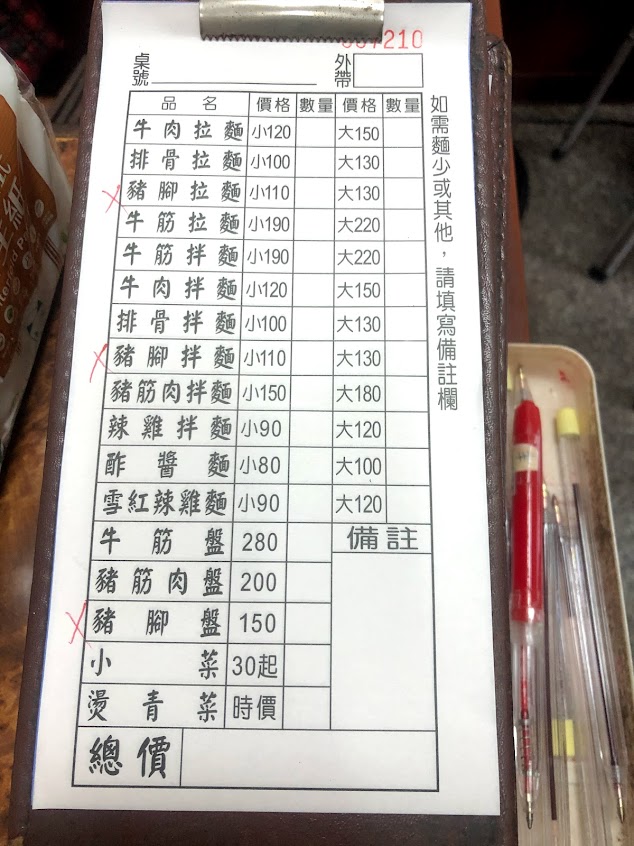 210
桌號 外帶
品名 價格 數量 價格 數量
牛肉拉麵 小120 大150
排骨拉麵 小100 大130
豬腳拉麵 小110 大130
牛筋拉麵 小190 大220
牛筋拌麵 小190 大220
牛肉拌麵 小120 大150
排骨拌麵 小100 大130
豬腳拌麵 小110 大130
豬筋肉拌麵 小150 大180
辣雞拌麵 小90 大120
酢醬麵 小80 大100
雪紅辣雞麵 小90 大120
牛筋盤 280 備註
豬筋肉盤 200
豬腳盤 150
小菜 30起
燙青菜 時價
總價
如需麵少或其他，請填寫備註欄